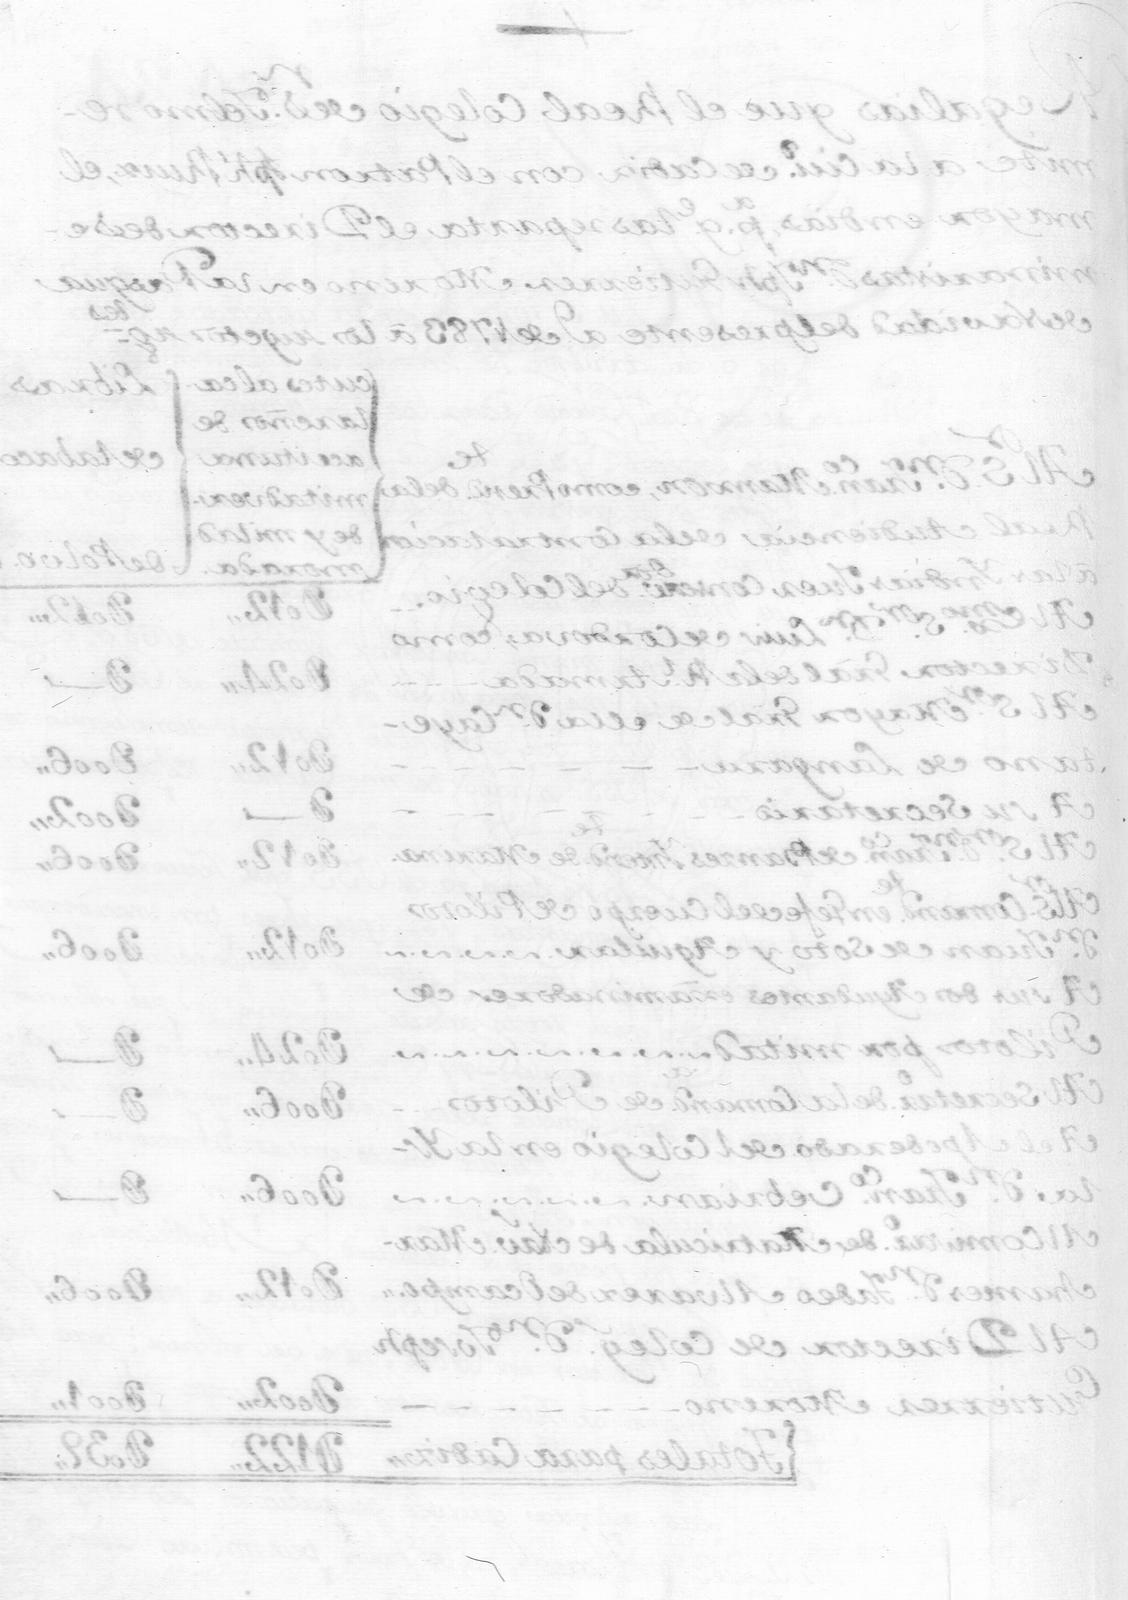 Regalias que el Real Colegio de S.n Telmo re-
mite a la Ciu.d de Cadiz con el Patron Jph. Ruiz, el
mayor en dias, p.a q.e las reparta el Director de Se-
minaristas D.n Jph. Gutierrez Moreno en la Pasqua
de Navidad del presente a.o de 1783 â los sugetos sig.tes
cuñetes alca-
rareños de
aceituna
mitad ver-
de y mitad
morada.
Libras
de tabaco
de Polvo.
Al S.r D.n Fran.co Manxon, como Presid.te de la
Real Audiencia de la Contratacion
a las Indias Juez Conserv.or del Colegio. -- D012,, D012,,
Al Exmo. S.or D.n Luis de Cordova, como
Director Gral de la R.l Armada - - - - D024,, D—
Al S.or Mayor Gral de ella D.n Caye-
tano de Langara - - - - - - D012,, D006,,
A su Secretario - - - - - D— D002,,
Al S.or D.n Fran.co de Banzes Intend.te de Marina. D012,, D006,,
Al S.r Comand.te en Gefe del Cuerpo de Pilotos
D.n Juan de Soto y Aguilar D012,, D006,,
A sus dos Ayudantes examinadores de
Pilotos por mitad D024,, D—
Al Secretar.o de la Comand.a de Pilotos - - D006,, D—
A el Apoderado del Colegio en la Ys-
la, D.n Fran.co Cebrian D006,, D—
Al Comisar.o de Matricula de Nav.s Mar-
D.n Tadeo Alvarez del Campo.,, D012,, D006,,
Al Director de Coleg.o D.n Joseph
Gutierrez Moreno - - - - - - D002,, D001,,
Totales para Cadiz.,, D122,, D039,,